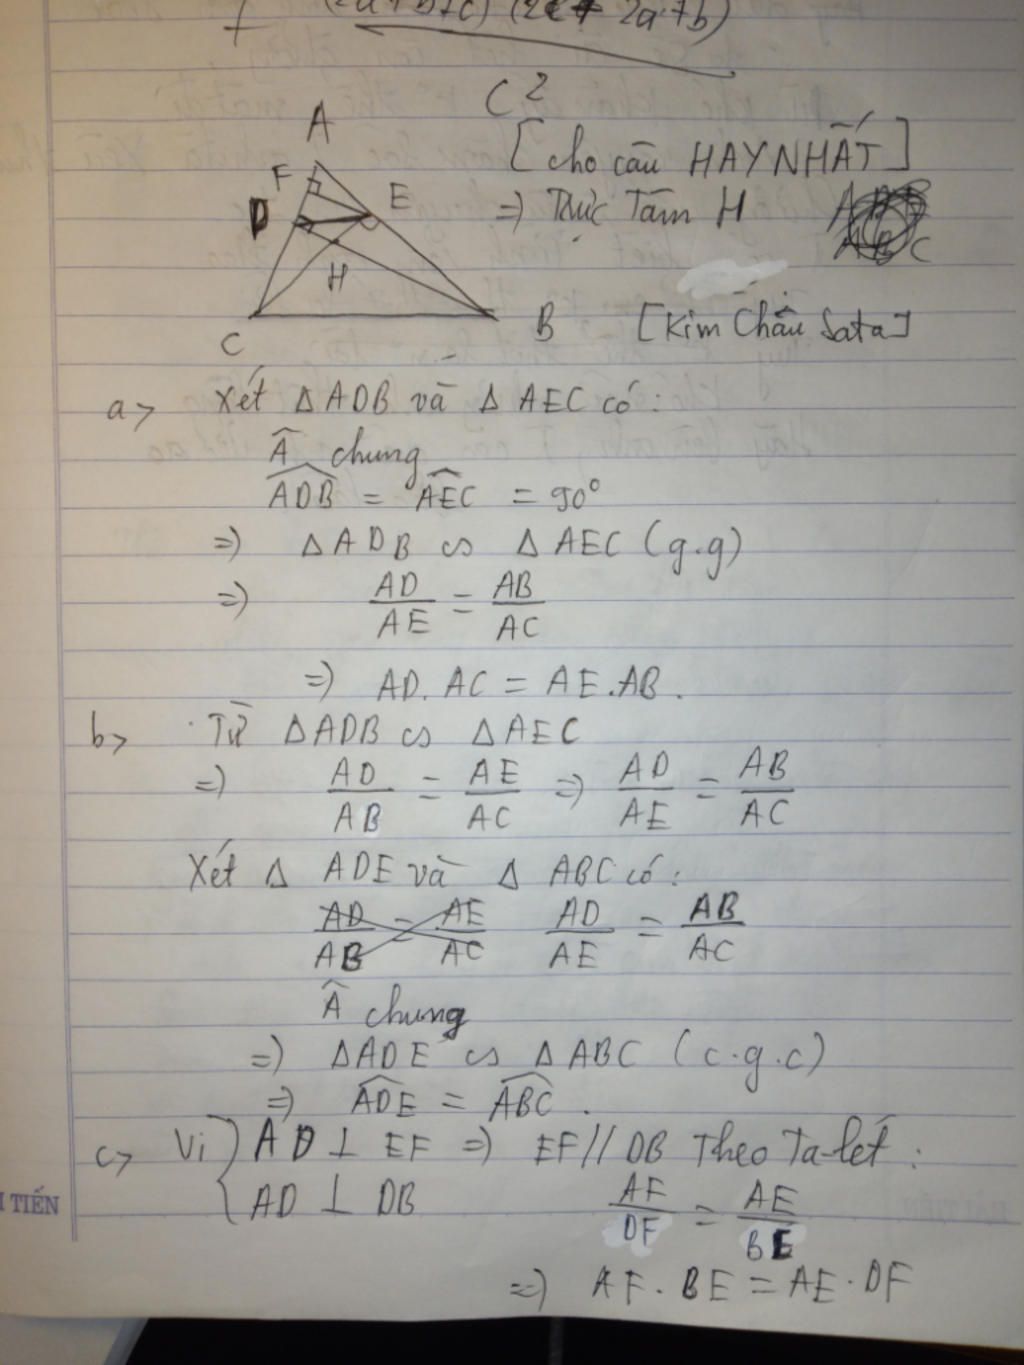 (2a+b+c)(2c+2a+b)
C²
A
[cho câu HAY NHẤT]
F
E
D
=> Trực Tâm H
H
C
B
[Kim Chấu Sata]
a> Xét Δ ADB và Δ AEC có:
Â chung
ADB = AEC = 90°
=> ΔADB ∽ ΔAEC (g.g)
=> AD/AE = AB/AC
=> AD.AC = AE.AB.
b> Từ ΔADB ∽ ΔAEC
=> AD/AB = AE/AC => AD/AE = AB/AC
Xét Δ ADE và Δ ABC có:
AD/AB = AE/AC AD/AE = AB/AC
Â chung
=> ΔADE ∽ ΔABC (c.g.c)
=> ADE = ABC.
c> Vì { AD ⊥ EF => EF // DB Theo Ta-lét:
AD ⊥ DB AF/DF = AE/BE
TIẾN
=> AF.BE = AE.DF